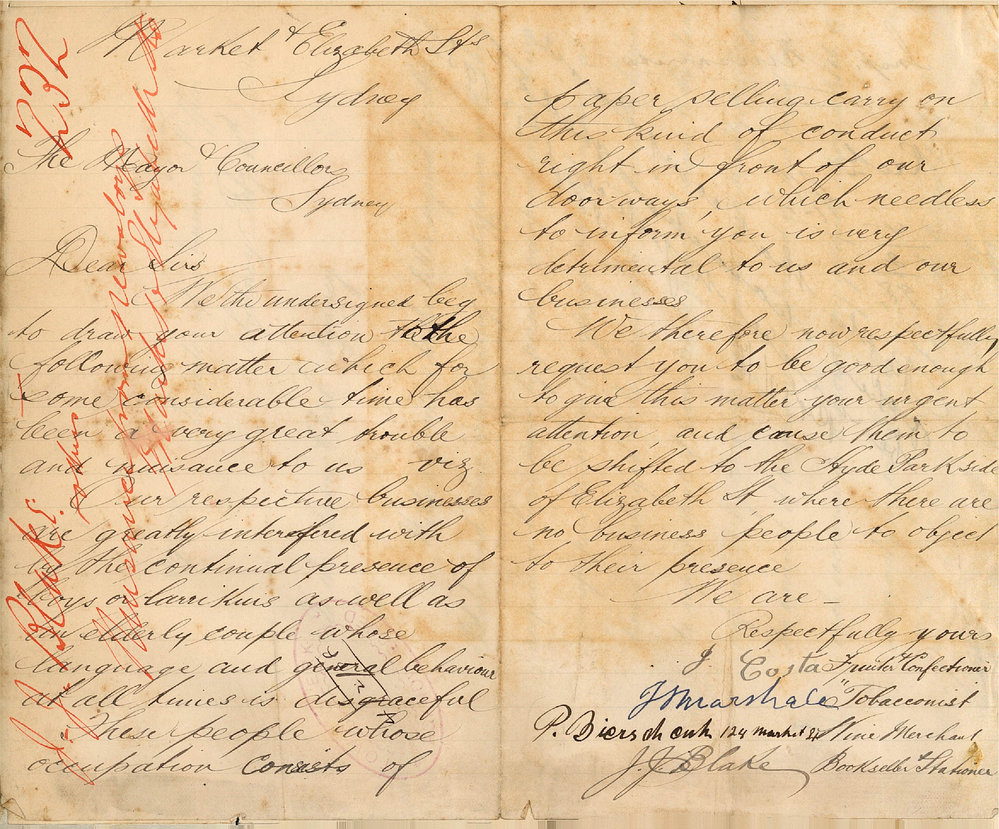 Market & Elizabeth Sts
Sydney
The Mayor & Councillors
Sydney
Dear Sirs
We the undersigned beg
to draw your attention to the
following matter which for
some considerable time has
been a very great trouble
and nuisance to us viz.
Our respective businesses
are greatly interefered with
by the continual presence of
boys or larrikins as well as
an elderly couple whose
language and general behaviour
at all times is disgraceful
These people whose
occupation consists of
paper selling carry on
this kind of conduct
right in front of our
doorways, which needless
to inform you is very
detrimental to us and our
businesses
We therefore now respectfully
request you to be good enough
to give this matter your urgent
attention and cause them to
be shifted to the Hyde Park side
of Elizabeth St where there are
no business people to object
to their presence
We are –
Respectfully yours
J Costa Fruiter & Confectioner
J Marshall Tobacconist
P. Dierschenk 124 market St Wine Merchant
J. J. Blake Bookseller & Stationer
J. J. Blake &
others
Nuisance from newsboys